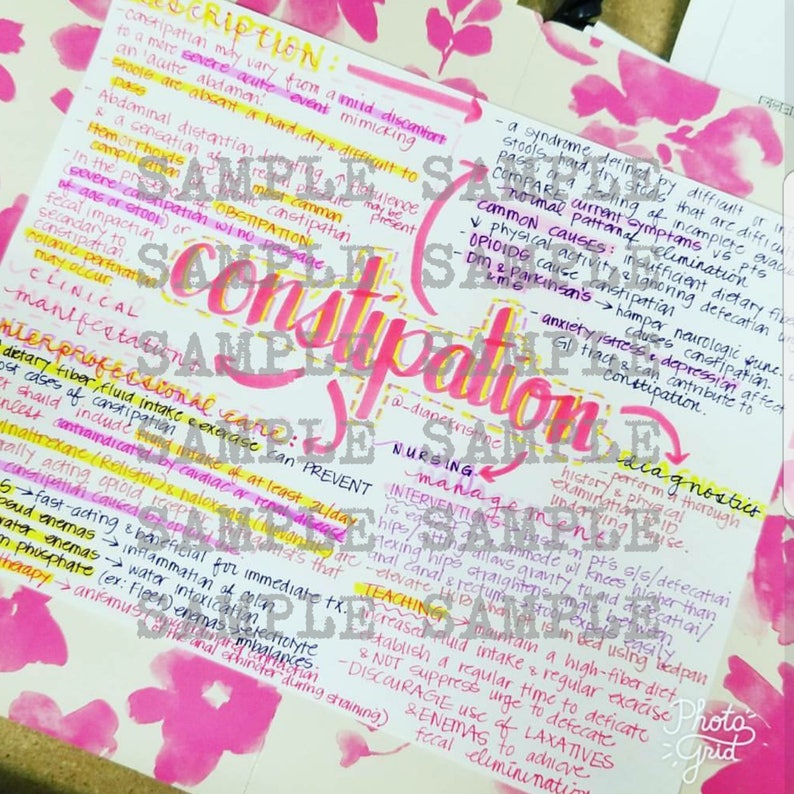 DESCRIPTION:
- constipation may vary from a mild discomfort
to a more severe acute event mimicking
an 'acute abdomen'.
- stools are absent or hard, dry & difficult to
pass
- Abdominal distention, bloating, ↑ flatulence
& a sensation of rectal pressure may be present
- Hemorrhoids → most common
complication of chronic constipation
- In the presence of OBSTIPATION
(severe constipation w/ no passage
of gas or stool) or
fecal impaction
secondary to
constipation,
colonic perforation
may occur.
CLINICAL
manifestations
- a syndrome defined by difficult or
stools: hard, dry stools that are difficult
pass, or a feeling of incomplete
- COMPARE current symptoms vs pts
normal pattern of elimination
COMMON CAUSES: insufficient dietary fiber
↓ physical activity & ignoring defecation
- OPIOIDS cause constipation
- DM & Parkinson's → hamper neurologic func.
& MS causes constipation.
- anxiety, stress & depression affect
GI tract & can contribute to
constipation.
constipation
@-dianekristine
interprofessional care:
dietary fiber, fluid intake & exercise can PREVENT
most cases of constipation
should include fluid intake of at least 2L/day
unless contraindicated by cardiac or renal disease
(Relistor) &
acting opioid receptor antagonists that
constipation caused by opioid use
→ fast-acting & beneficial for immediate tx.
enemas → inflammation of colon
water enemas → water intoxication
phosphate (ex: Fleet) enemas → electrolyte
imbalances.
therapy → anismus
of the anal sphincter during straining)
diagnostics
- perform a thorough
history & physical
examination to ID
underlying cause.
NURSING
management
INTERVENTIONS: based on pt's s/s/defecation
is easiest on commode w/ knees higher than
hips/sitting allows gravity to aid defecation/
flexing hips straightens angle between
anal canal & rectum so stool exits easily
- elevate HOB when pt is in bed using bedpan
TEACHING → maintain a high-fiber diet,
increased fluid intake & regular exercise
- establish a regular time to deficate
& NOT suppress urge to defecate
- DISCOURAGE use of LAXATIVES
& ENEMAS to achieve
fecal eliminination
SAMPLE SAMPLE
SAMPLE SAMPLE
SAMPLE SAMPLE
SAMPLE SAMPLE
SAMPLE SAMPLE
SAMPLE SAMPLE
SAMPLE SAMPLE
Photo
Grid